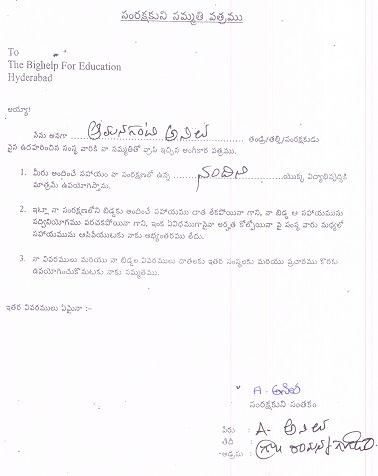 సంరక్షకుని సమ్మతి పత్రము
To
The Bighelp For Education
Hyderabad
అయ్యా!
నేను అనగా .......... తండ్రి/తల్లి/సంరక్షకుడు
పైన ఉదహరించిన సంస్థ వారికి నా సమ్మతితో వ్రాసి ఇచ్చిన అంగీకార పత్రము.
1. మీరు అందించే సహాయం నా సంరక్షణలో ఉన్న .......... నందిని .......... యొక్క విద్యాభివృద్ధికి
మాత్రమే ఉపయోగిస్తాను.
2. ఇట్లా నా సంరక్షణలోని బిడ్డకు అందించే సహాయము దాత లేకపోయినా గాని, నా బిడ్డ ఆ సహాయమును
సద్వినియోగము పరచకపోయినా గాని, ఇంక ఏవిధముగానైనా అర్హత కోల్పోయినా పై సంస్థ వారు మధ్యలో
సహాయమును ఆపివేయుటకు నాకు అభ్యంతరము లేదు.
3. నా వివరములు మరియు నా బిడ్డల వివరములు దాతలకు ఇతర సంస్థలకు మరియు ప్రచారము కొరకు
ఉపయోగించుకొనుటకు నాకు సమ్మతము.
ఇతర వివరములు ఏమైనా :-
A-
సంరక్షకుని సంతకం
పేరు : A-
తేదీ :
అడ్రసు :